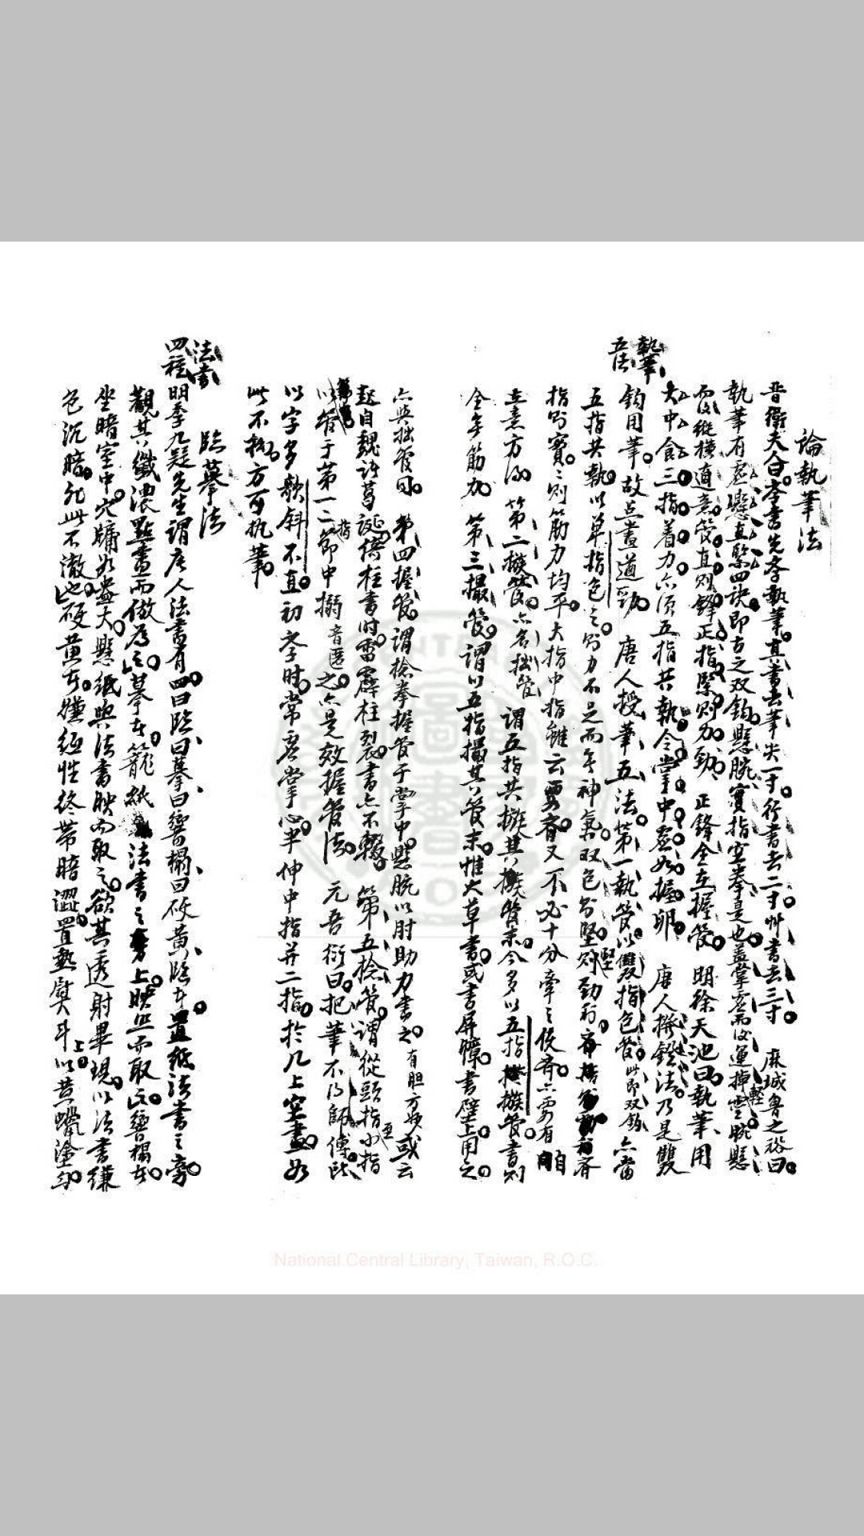 論執筆法
晉衛夫人曰李書先學執筆真書去筆尖一寸行書去二寸艸書去三寸 麻城魯之裕曰
執筆有虛懸直緊四訣即古之双鈎懸腕實指空拳是也蓋掌虛而後運掉靈腕懸
而後縱橫適意管直則鋒正指緊則力勁 正鋒全在握管 明徐天池曰執筆用
大中食三指着力亦須五指共執令掌中虛如握卵 唐人撥鐙法乃是雙
執筆五法
鈎用筆故点畫遒勁 唐人授筆五法第一執管以雙指包管此即双鈎亦當
五指共執以单指包之則力不足而無神氣双包則堅堅則勁
指則實之則筋力均平大指中指雖云要齊又不必十分牽之使齊亦要有
立意方得 第二搦管亦名拙管 謂五指共搦其管末今多以五指搦管書則
全無筋力 第三撮管謂以五指撮其管末惟大草書或書屏幛書壁上用之
亦與拙管同 第四握管謂捻拳握管于掌中懸腕以肘助力書之有胆方妙或云
起自魏諸葛誕倚柱書時雷霹柱裂書亦不輟 第五捻管謂從頭指至小指
以管于第一二節中搦音匿之亦是效握管法 元吾衍曰把筆不得師傅
以字多欹斜不直初李时常虛掌心半伸中指并二指於几上空畫如
此不拘方可執筆
臨摹法
法書四種
明季九疑先生謂唐人法書有四曰臨曰摹曰響榻曰硬黄臨者置紙法書之旁
觀其纖濃點畫而倣為之摹者籠紙法書之上映照而取之響榻者
坐暗室中穴牖如盎大懸紙與法書映而取之欲其透射畢現以法書縑
色沉暗非此不澈也硬黄者嫌紙性終帶暗澀置熱熨斗上以黄蠟塗勻
National Central Library, Taiwan, R.O.C.